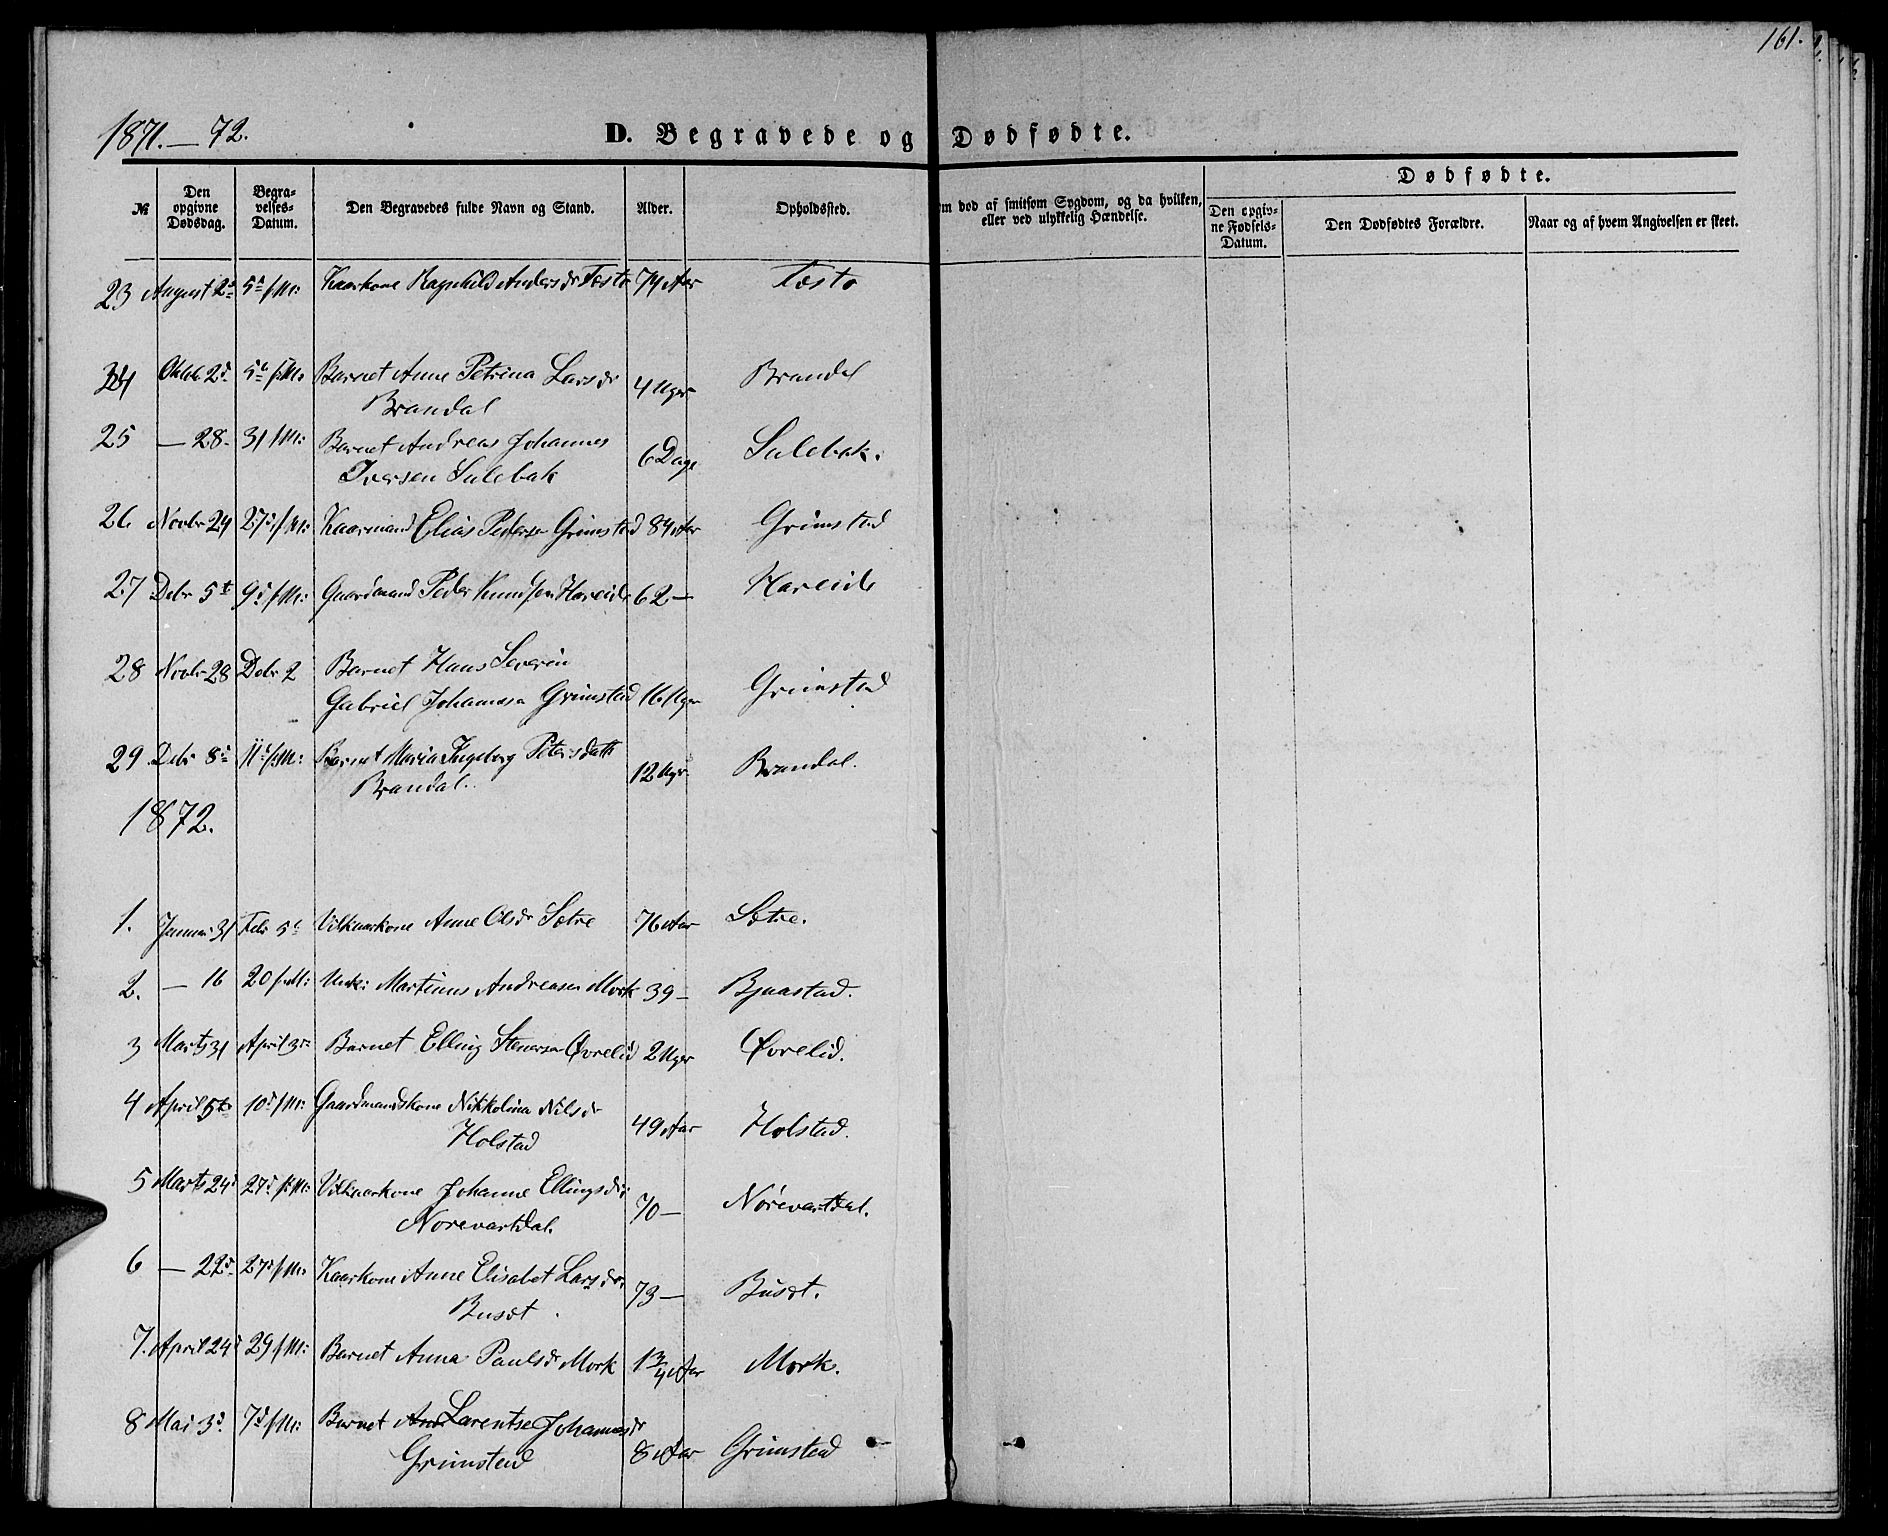 161.
1871.—72.
D. Begravede og Dødfødte.
№
Den opgivne Dødsdag.
Begravelses-Datum.
Den Begravedes fulde Navn og Stand.
Alder.
Opholdssted.
om død af smitsom Sygdom, og da hvilken, eller ved ulykkelig Hændelse.
Dødfødte.
Den opgivne Fødsels-Datum.
Den Dødfødtes Forældre.
Naar og af hvem Angivelsen er skeet.
23 August 2d 5te f.M: Kaarkone Ragnhild Andersdr Tæstø 74 Aar Tæstø
24 Oktbr 2d 5te f.M: Barnet Anne Petrina Larsdr 4 Uger Brandal
Brandal
25 — 28. 31 f.M: Barnet Andreas Johannes 6 Dage Sulebak.
Iversen Sulebak
26 Novbr 24 27d f.M: Kaarmand Elias Peders. Grimstad 84 Aar Grimstad
27 Debr 5te 9d f.M: Gaardmand Peder Knudsen Hareide 62— Hareide
28 Novbr 28 Debr 2 Barnet Hans Severin
Gabriel Johannesen Grimstad 16 Uger Grimstad
29. Debr 8d 11d f.M: Barnet Maria Ingeborg Petersdatt 12 Uger Brandal.
Brandal.
1872.
1. Januar 31 Febr 5te Vilkaarkone Anne Olsdr Sætre 76 Aar Sætre.
2. — 16 20 f.M: Unk: Martinus Andreasen Mork 39— Bjaastad.
3 Marts 31 April 3die Barnet Elling Steners. Øvrelid 2 Uger Øvrelid.
4 April 5te 10d f.M: Gaardmandskone Nikkolina Nilsdr
Holstad 49 Aar Holstad.
5 Marts 24d 27d f.M: Vilkaarkone Johanne Ellingsdr: 70— Nørevartdal.
Nørevartdal.
6 — 22d 27d f.M: Kaarkone Anne Elisabet Larsdr. 73— Busæt.
Busæt.
7. April 24d 29 f.M: Barnet Anna Paulsdr Mork 1 3/4 Aar Mork.
8 Mai 3d. 7d f.M: Barnet Ane Larentse Johannesdr
Grimstad 8 Aar Grimstad